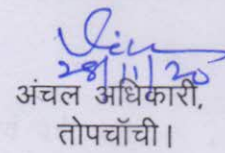 28/11/20
अंचल अधिकारी,
तोपचाँची।